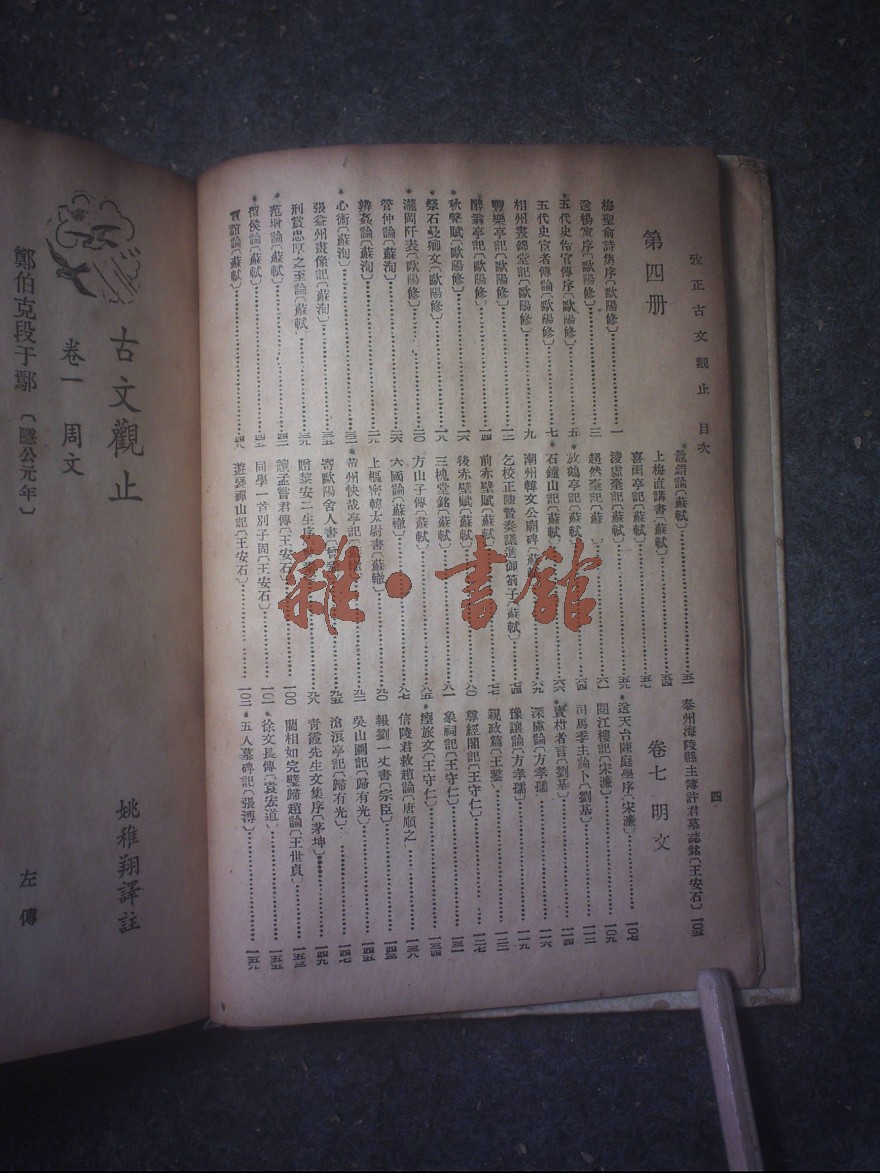 攷正古文觀止 目次
四
第四册
梅聖俞詩集序〔歐陽修〕 一
送楊寘序〔歐陽修〕 三
五代史伶官傳序〔歐陽修〕 五
五代史宦者傳論〔歐陽修〕 七
相州晝錦堂記〔歐陽修〕 九
豐樂亭記〔歐陽修〕 一二
醉翁亭記〔歐陽修〕 一四
秋聲賦〔歐陽修〕 一六
祭石曼卿文〔歐陽修〕 一八
瀧岡阡表〔歐陽修〕 二〇
管仲論〔蘇洵〕 二六
辨姦論〔蘇洵〕 二九
心術〔蘇洵〕 三二
張益州畫像記〔蘇洵〕 三五
刑賞忠厚之至論〔蘇軾〕 三九
范增論〔蘇軾〕 四二
留侯論〔蘇軾〕 四五
賈誼論〔蘇軾〕 四八
鼂錯論〔蘇軾〕 五一
上梅直講書〔蘇軾〕 五四
喜雨亭記〔蘇軾〕 五七
淩虛臺記〔蘇軾〕 五九
超然臺記〔蘇 六一
放鶴亭記〔蘇軾〕 六四
石鐘山記〔蘇軾〕 六六
潮州韓文公廟碑〔蘇軾〕 六九
乞校正陸贄奏議進御劄子〔蘇軾〕 七四
前赤壁賦〔蘇軾〕 七七
後赤壁賦〔蘇軾〕 八〇
三槐堂銘〔蘇軾〕
方山子傳〔蘇軾〕 八五
六國論〔蘇轍〕 八七
上樞密韓太尉書〔蘇轍〕 九〇
黃州快哉亭記〔蘇轍〕 九二
寄歐陽舍人書〔曾鞏〕 九五
贈黎安二生序 九八
讀孟嘗君傳〔王安石〕 一〇〇
同學一首別子固〔王安石〕 一〇一
遊褒禪山記〔王安石〕 一〇二
泰州海陵縣主簿許君墓誌銘〔王安石〕 一〇五
卷七 明文
送天台陳庭學序〔宋濂〕 一〇七
閱江樓記〔宋濂〕 一〇九
司馬季主論卜〔劉基〕 一一二
賣柑者言〔劉基〕 一一四
深慮論〔方孝孺〕 一一六
豫讓論〔方孝孺〕 一一九
親政篇〔王鏊〕 一二二
尊經閣記〔王守仁〕 一二七
象祠記〔王守仁〕 一三一
瘞旅文〔王守仁〕 一三四
信陵君救趙論〔唐順之〕 一三八
報劉一丈書〔宗臣〕 一四二
吳山圖記〔歸有光〕 一四五
滄浪亭記〔歸有光〕 一四七
青霞先生文集序〔茅坤〕 一四九
藺相如完璧歸趙論〔王世貞〕 一五三
徐文長傳〔袁宏道〕 一五五
五人墓碑記〔張溥〕 一五九
古文觀止
姚稚翔譯註
卷一 周文
鄭伯克段于鄢〔隱公元年〕
左傳
雜·書館